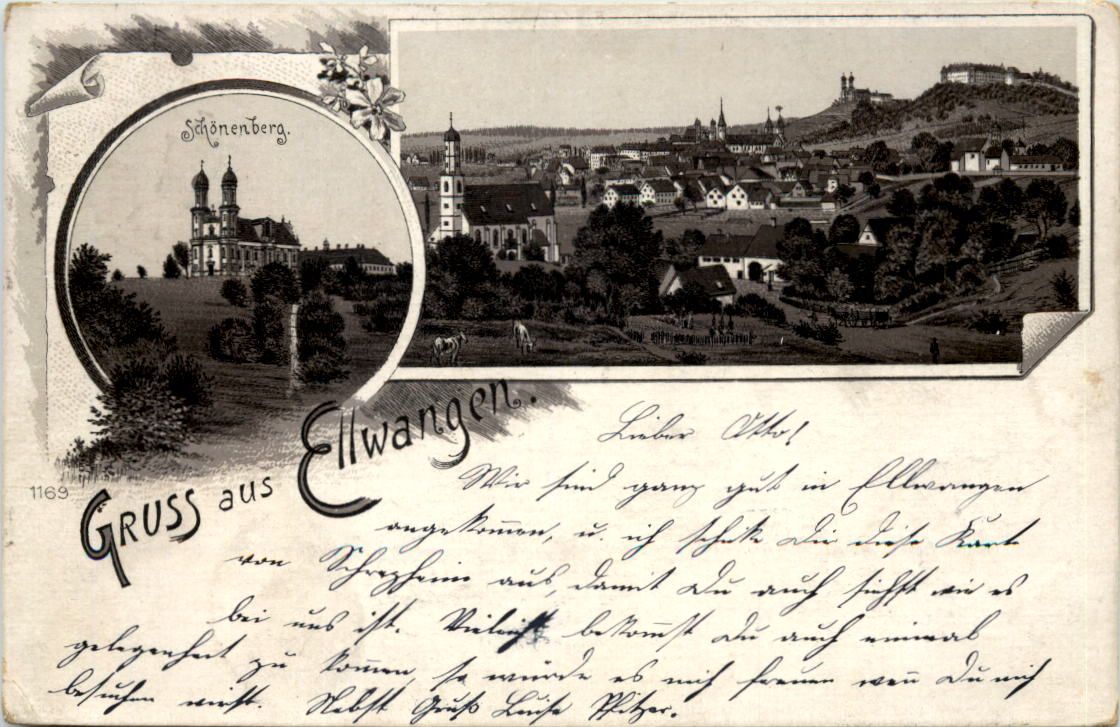 Schönenberg.
Gruss aus Ellwangen.
1169
Lieber Otto!
Wir sind ganz gut in Ellwangen
angekom̅en, u. ich schicke Dir diese Karte
von Schrezheim aus, damit Du auch siehst wie es
bei uns ist. Vieleicht bekom̅st Du auch einmal
gelegenheit zu kom̅en, so würde es mich freuen wen̅ Du mich
besuchen wirst. Nebst Gruß Luise Pfitzer.